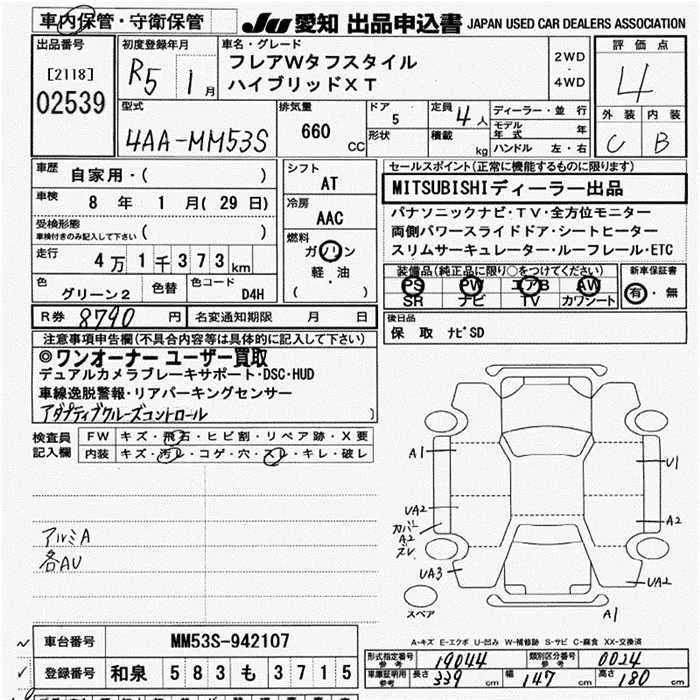 車内保管・守衛保管 JU 愛知 出品申込書 JAPAN USED CAR DEALERS ASSOCIATION
出品番号 初度登録年月 車名・グレード 評価点
[2118] R5 1月 フレアWタフスタイル 2WD
02539 ハイブリッドXT 4WD 4
型式 排気量 ドア 5 定員 4人 ディーラー・並行 外装 内装
4AA-MM53S 660 CC 形状 積載 kg モデル年式 年 C B
ハンドル 左・右
車歴 自家用・( ) シフト AT セールスポイント(正常に機能するものに限ります)
車検 8年 1月(29日) 冷房 AAC MITSUBISHIディーラー出品
受検形態 パナソニックナビ・TV・全方位モニター
車検付きのみ記入して下さい ( ) 燃料 両側パワースライドドア・シートヒーター
走行 4万1千373km ガソリン スリムサーキュレーター・ルーフレール・ETC
軽・油
( )
色 グリーン2 色替 色コード D4H 装備品(純正品に限り○をつけてください) 新車保証書
PS PW エアB AW 有・無
SR ナビ TV カワシート
R券 8790円 名変通知期限 月 日 後日品
保 取 ナビSD
注意事項申告欄(不具合内容等は具体的に記入して下さい)
◎ワンオーナー ユーザー買取
デュアルカメラブレーキサポート・DSC・HUD
車線逸脱警報・リアパーキングセンサー
アダプティブクルーズコントロール )
検査員記入欄 FW キズ・飛石・ヒビ割・リペア跡・X要
内装 キズ・汚レ・コゲ・穴・スレ・キレ・破レ
A1
U1
UA2
カバーA2
ズレ
A2
アルミA
各AU
UA3
UA2
スペア
A1
A-キズ E-エクボ U-凹み W-補修跡 S-サビ C-腐食 XX-交換済
車台番号 MM53S-942107
形式指定番号 参考 19044 類別区分番号 参考 0024
登録番号 和泉 583 も 3715
車庫証明用 参考 長さ 339cm 幅 147cm 高さ 180cm